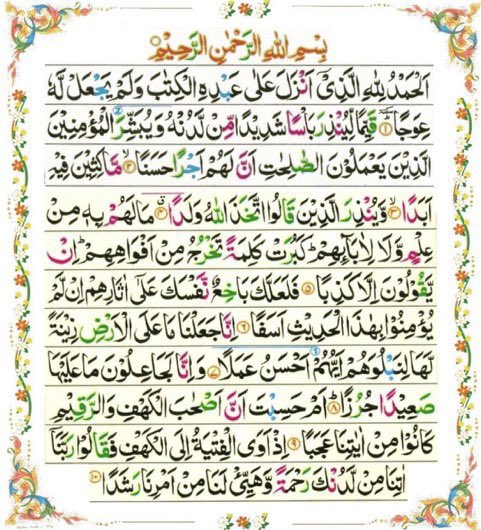 بِسْمِ اللهِ الرَّحْمٰنِ الرَّحِيْمِ
اَلْحَمْدُ لِلّٰهِ الَّذِىْٓ اَنْزَلَ عَلٰى عَبْدِهِ الْكِتٰبَ وَلَمْ يَجْعَلْ لَّهٗ
عِوَجًا ۜ ﴿۱﴾ قَيِّمًا لِّيُنْذِرَ بَاْسًا شَدِيْدًا مِّنْ لَّدُنْهُ وَيُبَشِّرَ الْمُؤْمِنِيْنَ
الَّذِيْنَ يَعْمَلُوْنَ الصّٰلِحٰتِ اَنَّ لَهُمْ اَجْرًا حَسَنًا ﴿۲﴾ مَّاكِثِيْنَ فِيْهِ
اَبَدًا ﴿۳﴾ وَّيُنْذِرَ الَّذِيْنَ قَالُوا اتَّخَذَ اللّٰهُ وَلَدًا ﴿۴﴾ مَا لَهُمْ بِهٖ مِنْ
عِلْمٍ وَّلَا لِاٰبَآئِهِمْ ؕ كَبُرَتْ كَلِمَةً تَخْرُجُ مِنْ اَفْوَاهِهِمْ ؕ اِنْ
يَّقُوْلُوْنَ اِلَّا كَذِبًا ﴿۵﴾ فَلَعَلَّكَ بَاخِعٌ نَّفْسَكَ عَلٰٓى اٰثَارِهِمْ اِنْ لَّمْ
يُؤْمِنُوْا بِهٰذَا الْحَدِيْثِ اَسَفًا ﴿۶﴾ اِنَّا جَعَلْنَا مَا عَلَى الْاَرْضِ زِيْنَةً
لَّهَا لِنَبْلُوَهُمْ اَيُّهُمْ اَحْسَنُ عَمَلًا ﴿۷﴾ وَاِنَّا لَجَاعِلُوْنَ مَا عَلَيْهَا
صَعِيْدًا جُرُزًا ؕ ﴿۸﴾ اَمْ حَسِبْتَ اَنَّ اَصْحٰبَ الْكَهْفِ وَالرَّقِيْمِ
كَانُوْا مِنْ اٰيٰتِنَا عَجَبًا ﴿۹﴾ اِذْ اَوَى الْفِتْيَةُ اِلَى الْكَهْفِ فَقَالُوْا رَبَّنَآ
اٰتِنَا مِنْ لَّدُنْكَ رَحْمَةً وَّهَيِّئْ لَنَا مِنْ اَمْرِنَا رَشَدًا ﴿۱۰﴾